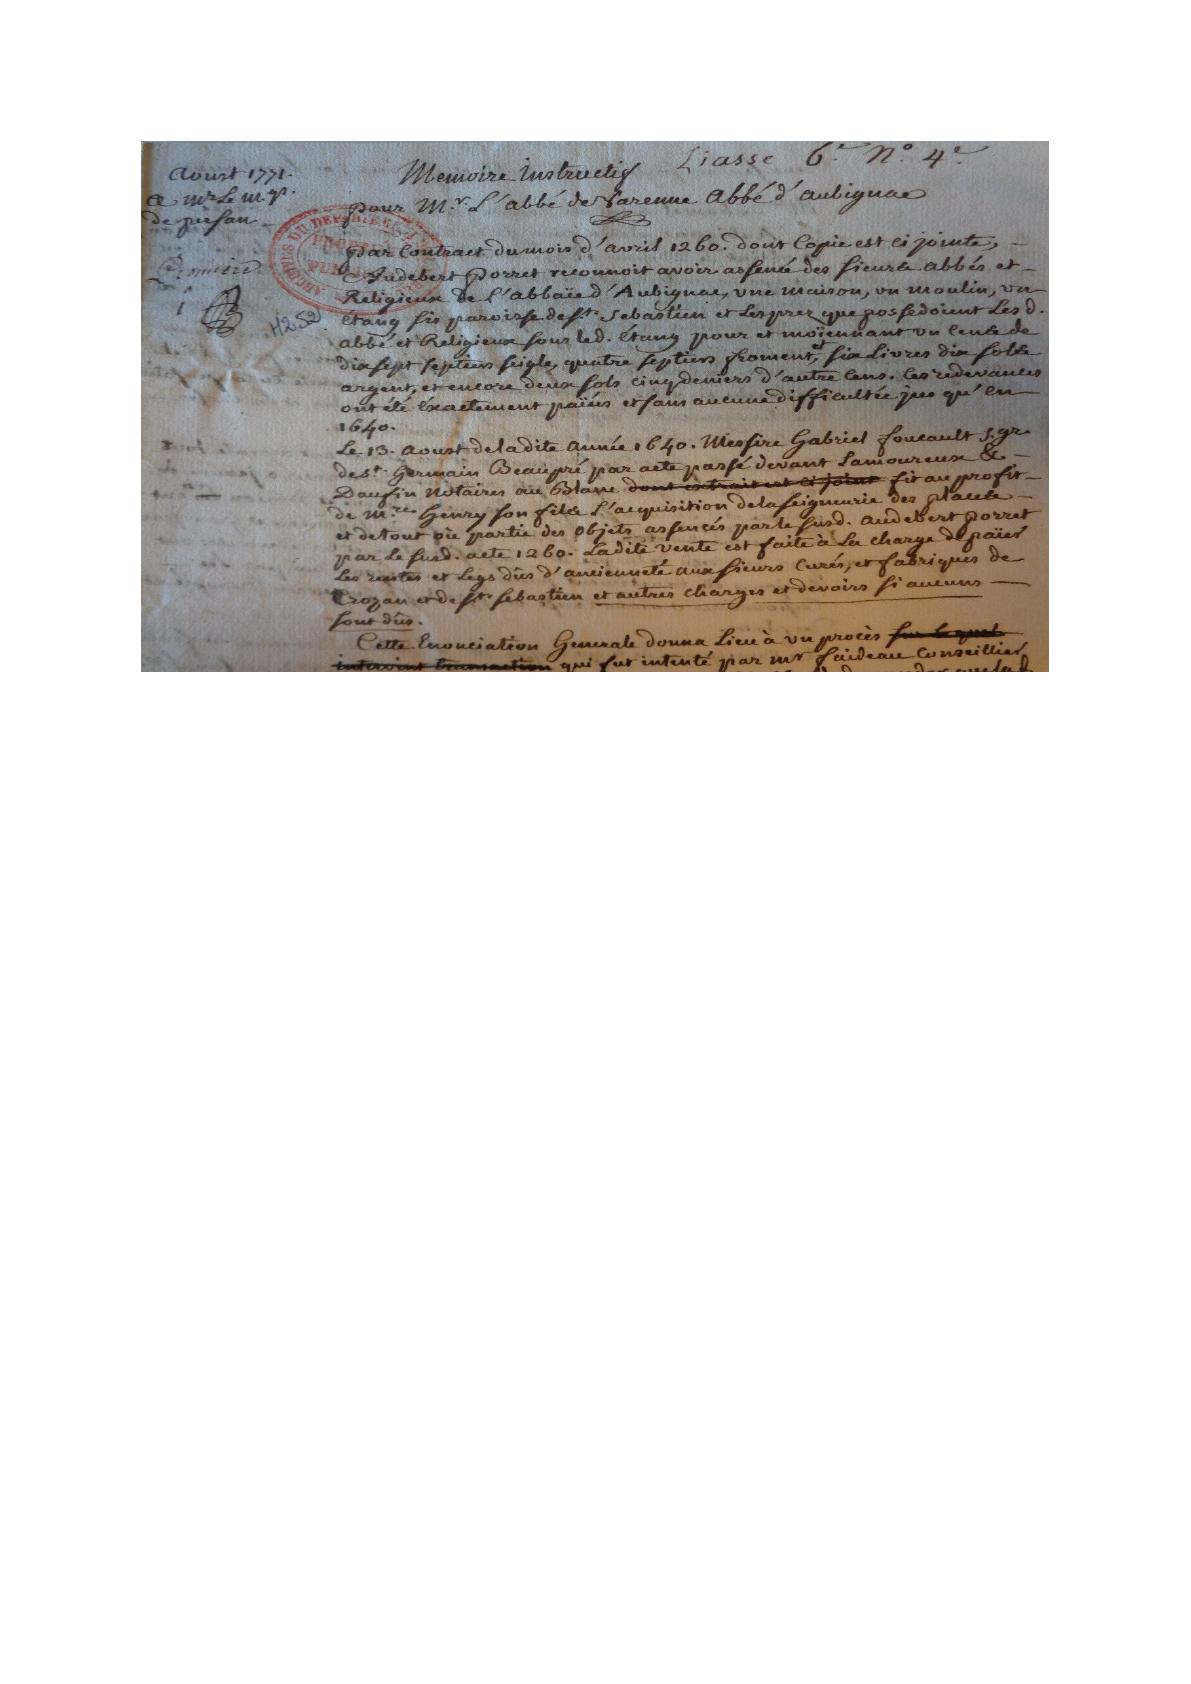 Liasse 6.e N.o 4.e
Aoust 1771.
a mr Le m.is
de
Memoire Instructif
pour M.r L'abbé de Varenne Abbé d'aubignac
Premiere
1
H252
ARCHIVES DU DEP
Par Contract du mois d'avril 1260. dont Copie est ci jointe, —
Audebert Porret reconnoit avoir assencé des sieurs abbés et —
Religieux de L'abbaïe d'Aubignac, vne maison, vn moulin, vn
étang sis paroisse de st. Sebastien et Les prez que possedoient Les d.
abbé et Religieux sous led. étang pour et moïennant un Cens de
dix sept septiers seigle, quatre septiers froment, et six Livres dix sols
argent, et encore deux sols cinq deniers d'autre Cens. Ces redevances
ont été éxactement païées et sans aucune difficultée jus qu'en —
1640.
Le 13. Aoust de la dite Année 1640. Messire Gabriel foucault s.gr
de st. Germain Beaupré par acte passé devant Lamoureux & —
Daufin Notaires au Blanc dont extrait est ci joint fit au profit —
de M.re Henry son fils L'acquisition de la seigneurie des places —
et de tout où partie des objets assencés par le susd. Audebert Porret
par Le susd. acte 1260. Ladite vente est faite à La charge de païer
Les rentes et Legs dûs d'ancienneté aux sieurs Curés, et fabriques de
Crozan et de st. Sebastien et autres charges et devoirs si aucuns —
sont dûs.
Cette Enonciation Generale donna Lieu à vn procès sur le quel
intervint transaction qui fut intenté par mr faideau Conseillier